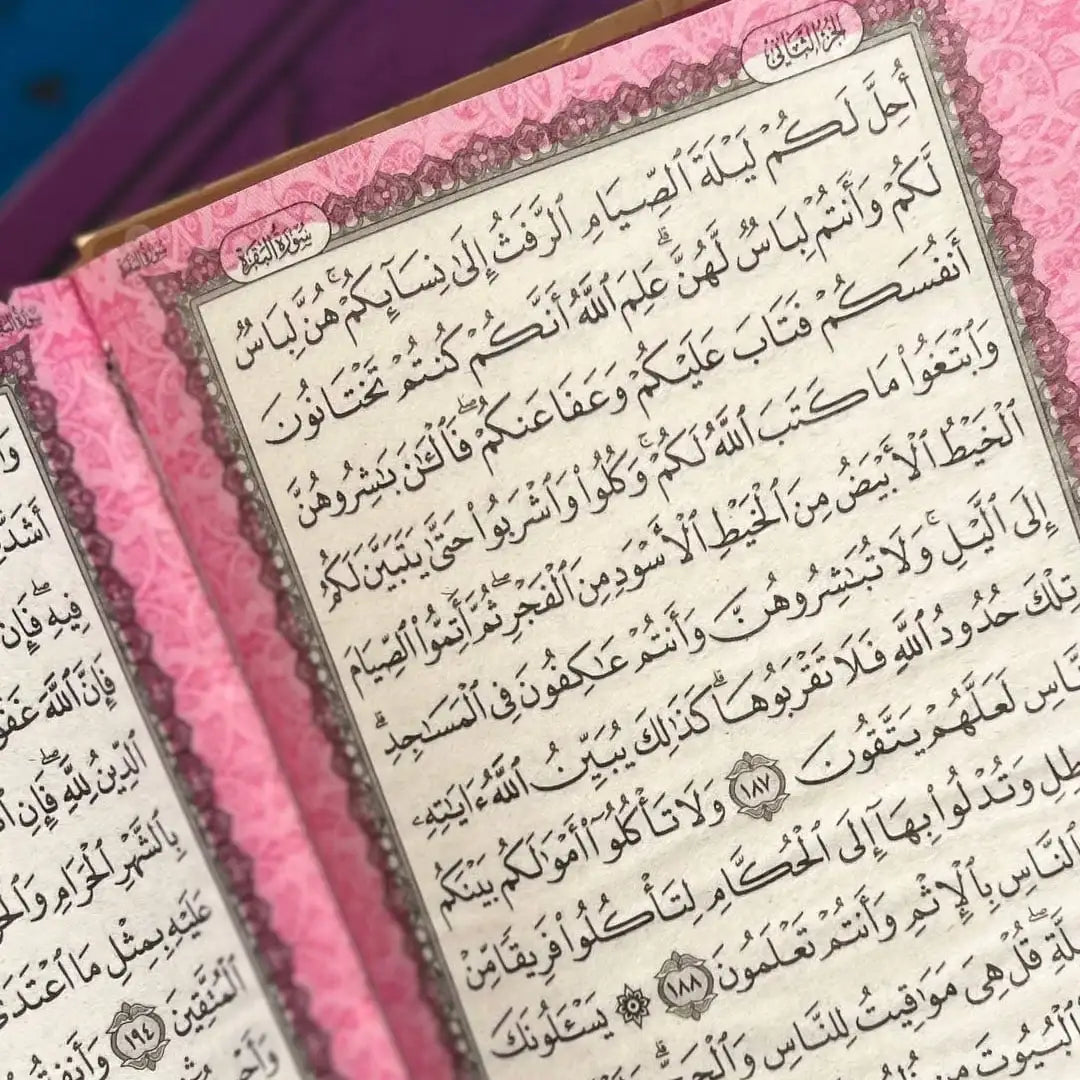 الجزء الثاني
سورة البقرة
أُحِلَّ لَكُمْ لَيْلَةَ ٱلصِّيَامِ ٱلرَّفَثُ إِلَىٰ نِسَآئِكُمْ ۚ هُنَّ لِبَاسٌ
لَّكُمْ وَأَنتُمْ لِبَاسٌ لَّهُنَّ ۗ عَلِمَ ٱللَّهُ أَنَّكُمْ كُنتُمْ تَخْتَانُونَ
أَنفُسَكُمْ فَتَابَ عَلَيْكُمْ وَعَفَا عَنكُمْ ۖ فَٱلْـَٰٔنَ بَـٰشِرُوهُنَّ
وَٱبْتَغُوا۟ مَا كَتَبَ ٱللَّهُ لَكُمْ ۚ وَكُلُوا۟ وَٱشْرَبُوا۟ حَتَّىٰ يَتَبَيَّنَ لَكُمُ
ٱلْخَيْطُ ٱلْأَبْيَضُ مِنَ ٱلْخَيْطِ ٱلْأَسْوَدِ مِنَ ٱلْفَجْرِ ۖ ثُمَّ أَتِمُّوا۟ ٱلصِّيَامَ
إِلَى ٱلَّيْلِ ۚ وَلَا تُبَـٰشِرُوهُنَّ وَأَنتُمْ عَـٰكِفُونَ فِى ٱلْمَسَـٰجِدِ ۗ
تِلْكَ حُدُودُ ٱللَّهِ فَلَا تَقْرَبُوهَا ۗ كَذَٰلِكَ يُبَيِّنُ ٱللَّهُ ءَايَـٰتِهِۦ
لَعَلَّهُمْ يَتَّقُونَ ١٨٧ وَلَا تَأْكُلُوٓا۟ أَمْوَٰلَكُم بَيْنَكُم
وَتُدْلُوا۟ بِهَآ إِلَى ٱلْحُكَّامِ لِتَأْكُلُوا۟ فَرِيقًا مِّنْ
ٱلنَّاسِ بِٱلْإِثْمِ وَأَنتُمْ تَعْلَمُونَ ١٨٨ ۞ يَسْـَٔلُونَكَ
قُلْ هِىَ مَوَٰقِيتُ لِلنَّاسِ وَٱلْحَجِّ ۗ
ٱلْبُيُوتَ مِن
فِيهِ ۖ فَإِن
فَإِنَّ ٱللَّهَ
ٱلدِّينُ لِلَّهِ ۖ فَإِنِ
بِٱلشَّهْرِ ٱلْحَرَامِ
عَلَيْهِ بِمِثْلِ مَا ٱعْتَدَىٰ
ٱلْمُتَّقِينَ ١٩٤